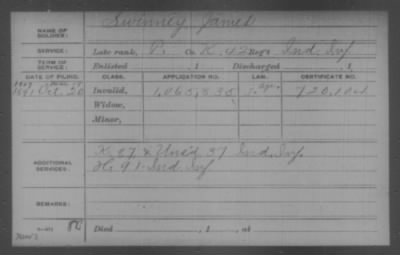 NAME OF SOLDIER: Swinney, James
SERVICE: Late rank, P. Co. K. 42 Reg't Ind. Inf
TERM OF SERVICE: Enlisted , 1 Discharged , 1
DATE OF FILING. CLASS. APPLICATION NO. LAW. CERTIFICATE NO.
1891 Oct. 20 Invalid, 1,065,535
Widow,
Minor,
ADDITIONAL SERVICES: K. 27 & Unas'd 37 Ind. Inf.
H. 91 Ind. Inf
REMARKS:
Died , 1 , at